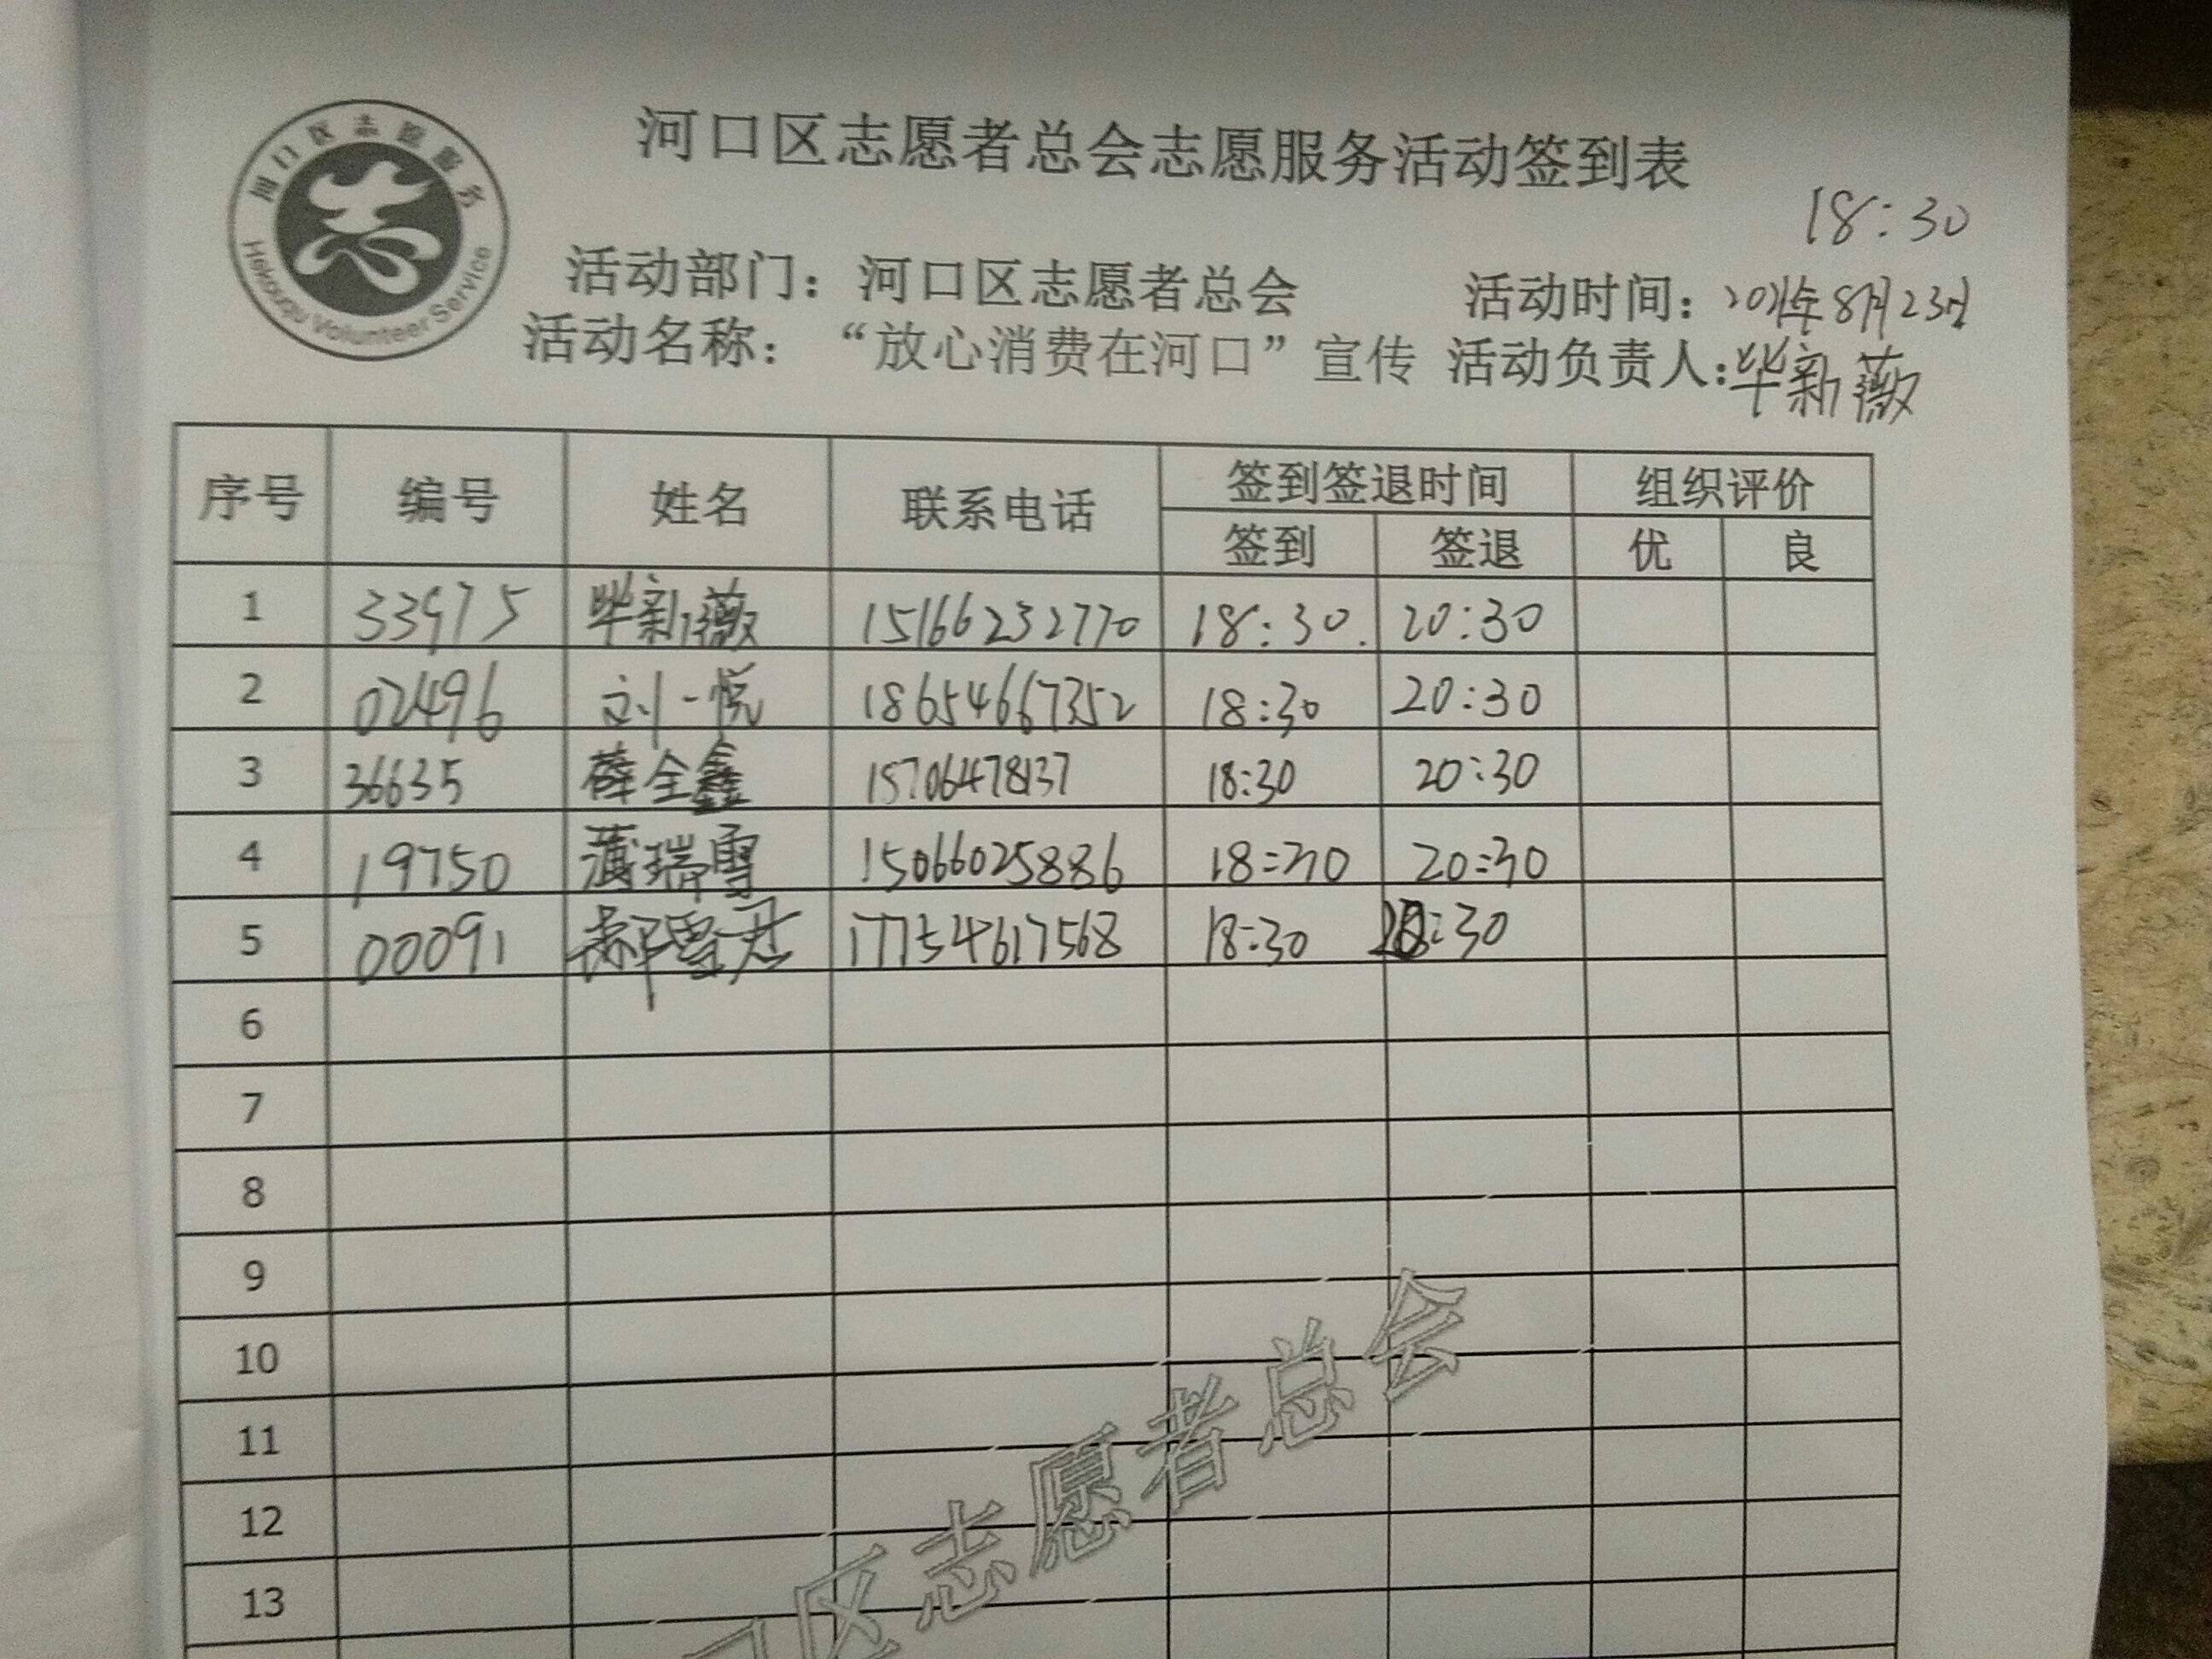 河口区志愿服务
Hekouqu Volunteer Service
河口区志愿者总会志愿服务活动签到表
18:30
活动部门：河口区志愿者总会 活动时间：2021年8月23日
活动名称：“放心消费在河口”宣传 活动负责人:毕新薇
序号 编号 姓名 联系电话 签到签退时间 组织评价
签到 签退 优 良
1 33975 毕新薇 15166232770 18:30. 20:30
2 02496 刘一悦 18654667352 18:30 20:30
3 36635 薛全鑫 15706478137 18:30 20:30
4 19750 蒲瑞雪 15066025886 18:30 20:30
5 00091 郝雪君 17754617568 18:30 20:30
6
7
8
9
10
11
12
13
口区志愿者总会